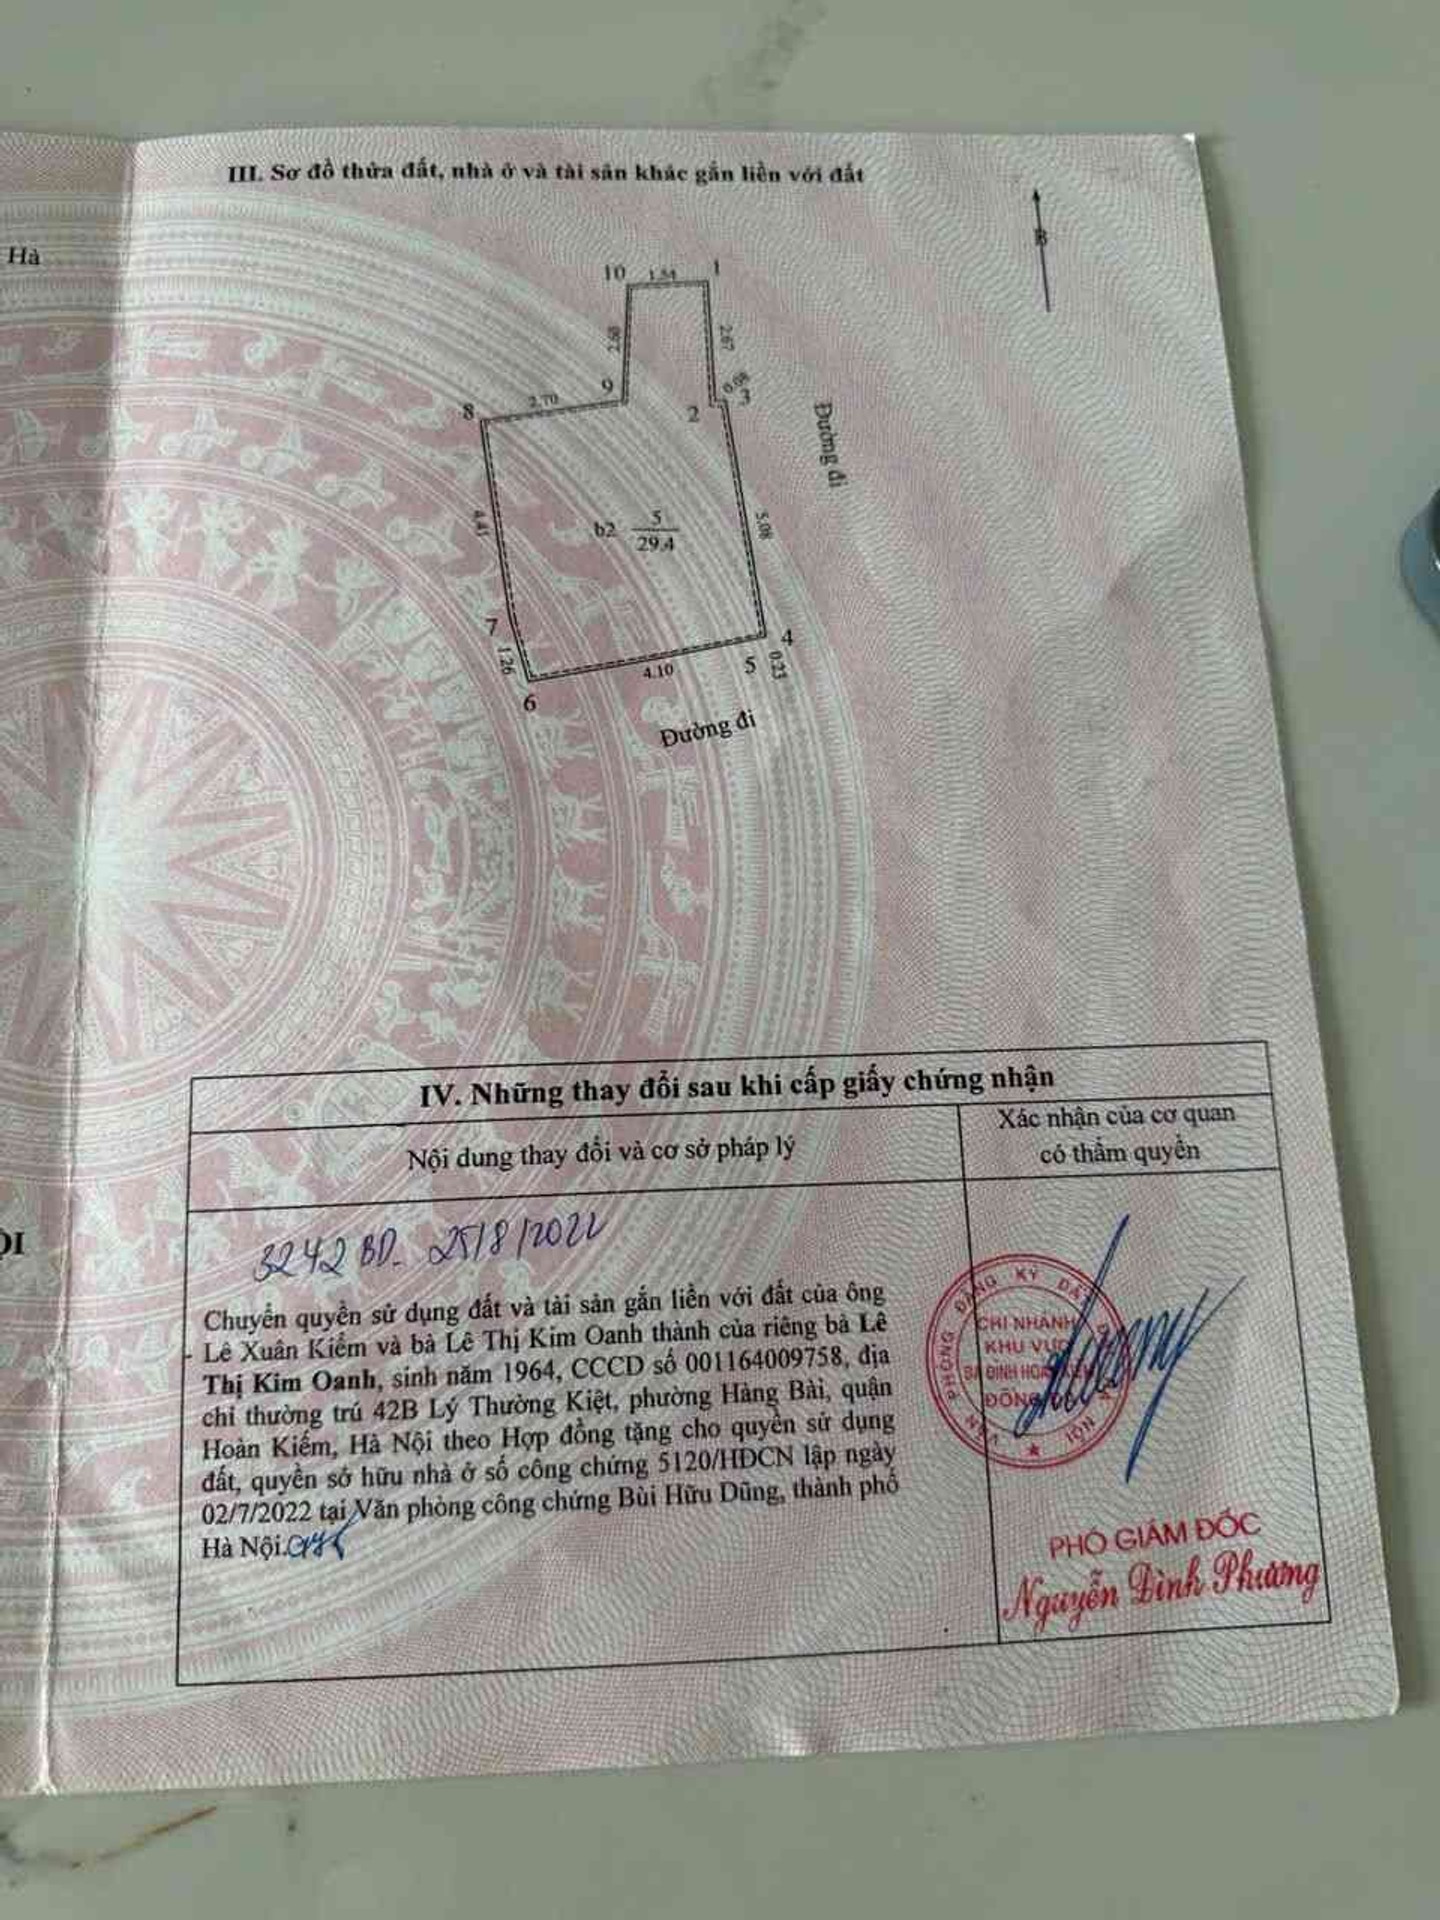 III. Sơ đồ thửa đất, nhà ở và tài sản khác gắn liền với đất
Hà
B
10 1.54 1
2.60 2.67
9 0.08 3
8 2.70 2
Đường đi
4.41 b2 5 5.08
29.4
7 4
1.26 4.10 5 0.23
6
Đường đi
IV. Những thay đổi sau khi cấp giấy chứng nhận
Nội dung thay đổi và cơ sở pháp lý
Xác nhận của cơ quan
có thẩm quyền
ỘI
3242 BD. 25/8/2022
Chuyển quyền sử dụng đất và tài sản gắn liền với đất của ông
Lê Xuân Kiểm và bà Lê Thị Kim Oanh thành của riêng bà Lê
Thị Kim Oanh, sinh năm 1964, CCCD số 001164009758, địa
chỉ thường trú 42B Lý Thường Kiệt, phường Hàng Bài, quận
Hoàn Kiếm, Hà Nội theo Hợp đồng tặng cho quyền sử dụng
đất, quyền sở hữu nhà ở số công chứng 5120/HĐCN lập ngày
02/7/2022 tại Văn phòng công chứng Bùi Hữu Dũng, thành phố
Hà Nội.
VĂN PHÒNG ĐĂNG KÝ ĐẤT NỘI
CHI NHÁNH
KHU VỰC
BA ĐÌNH
PHÓ GIÁM ĐỐC
Nguyễn Đình Phương